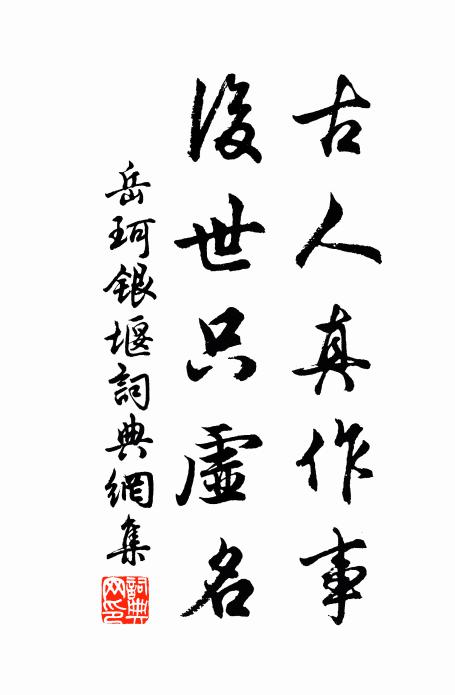 古人真作事
後世只虛名
岳珂銀堰詞典網集
詞典網印